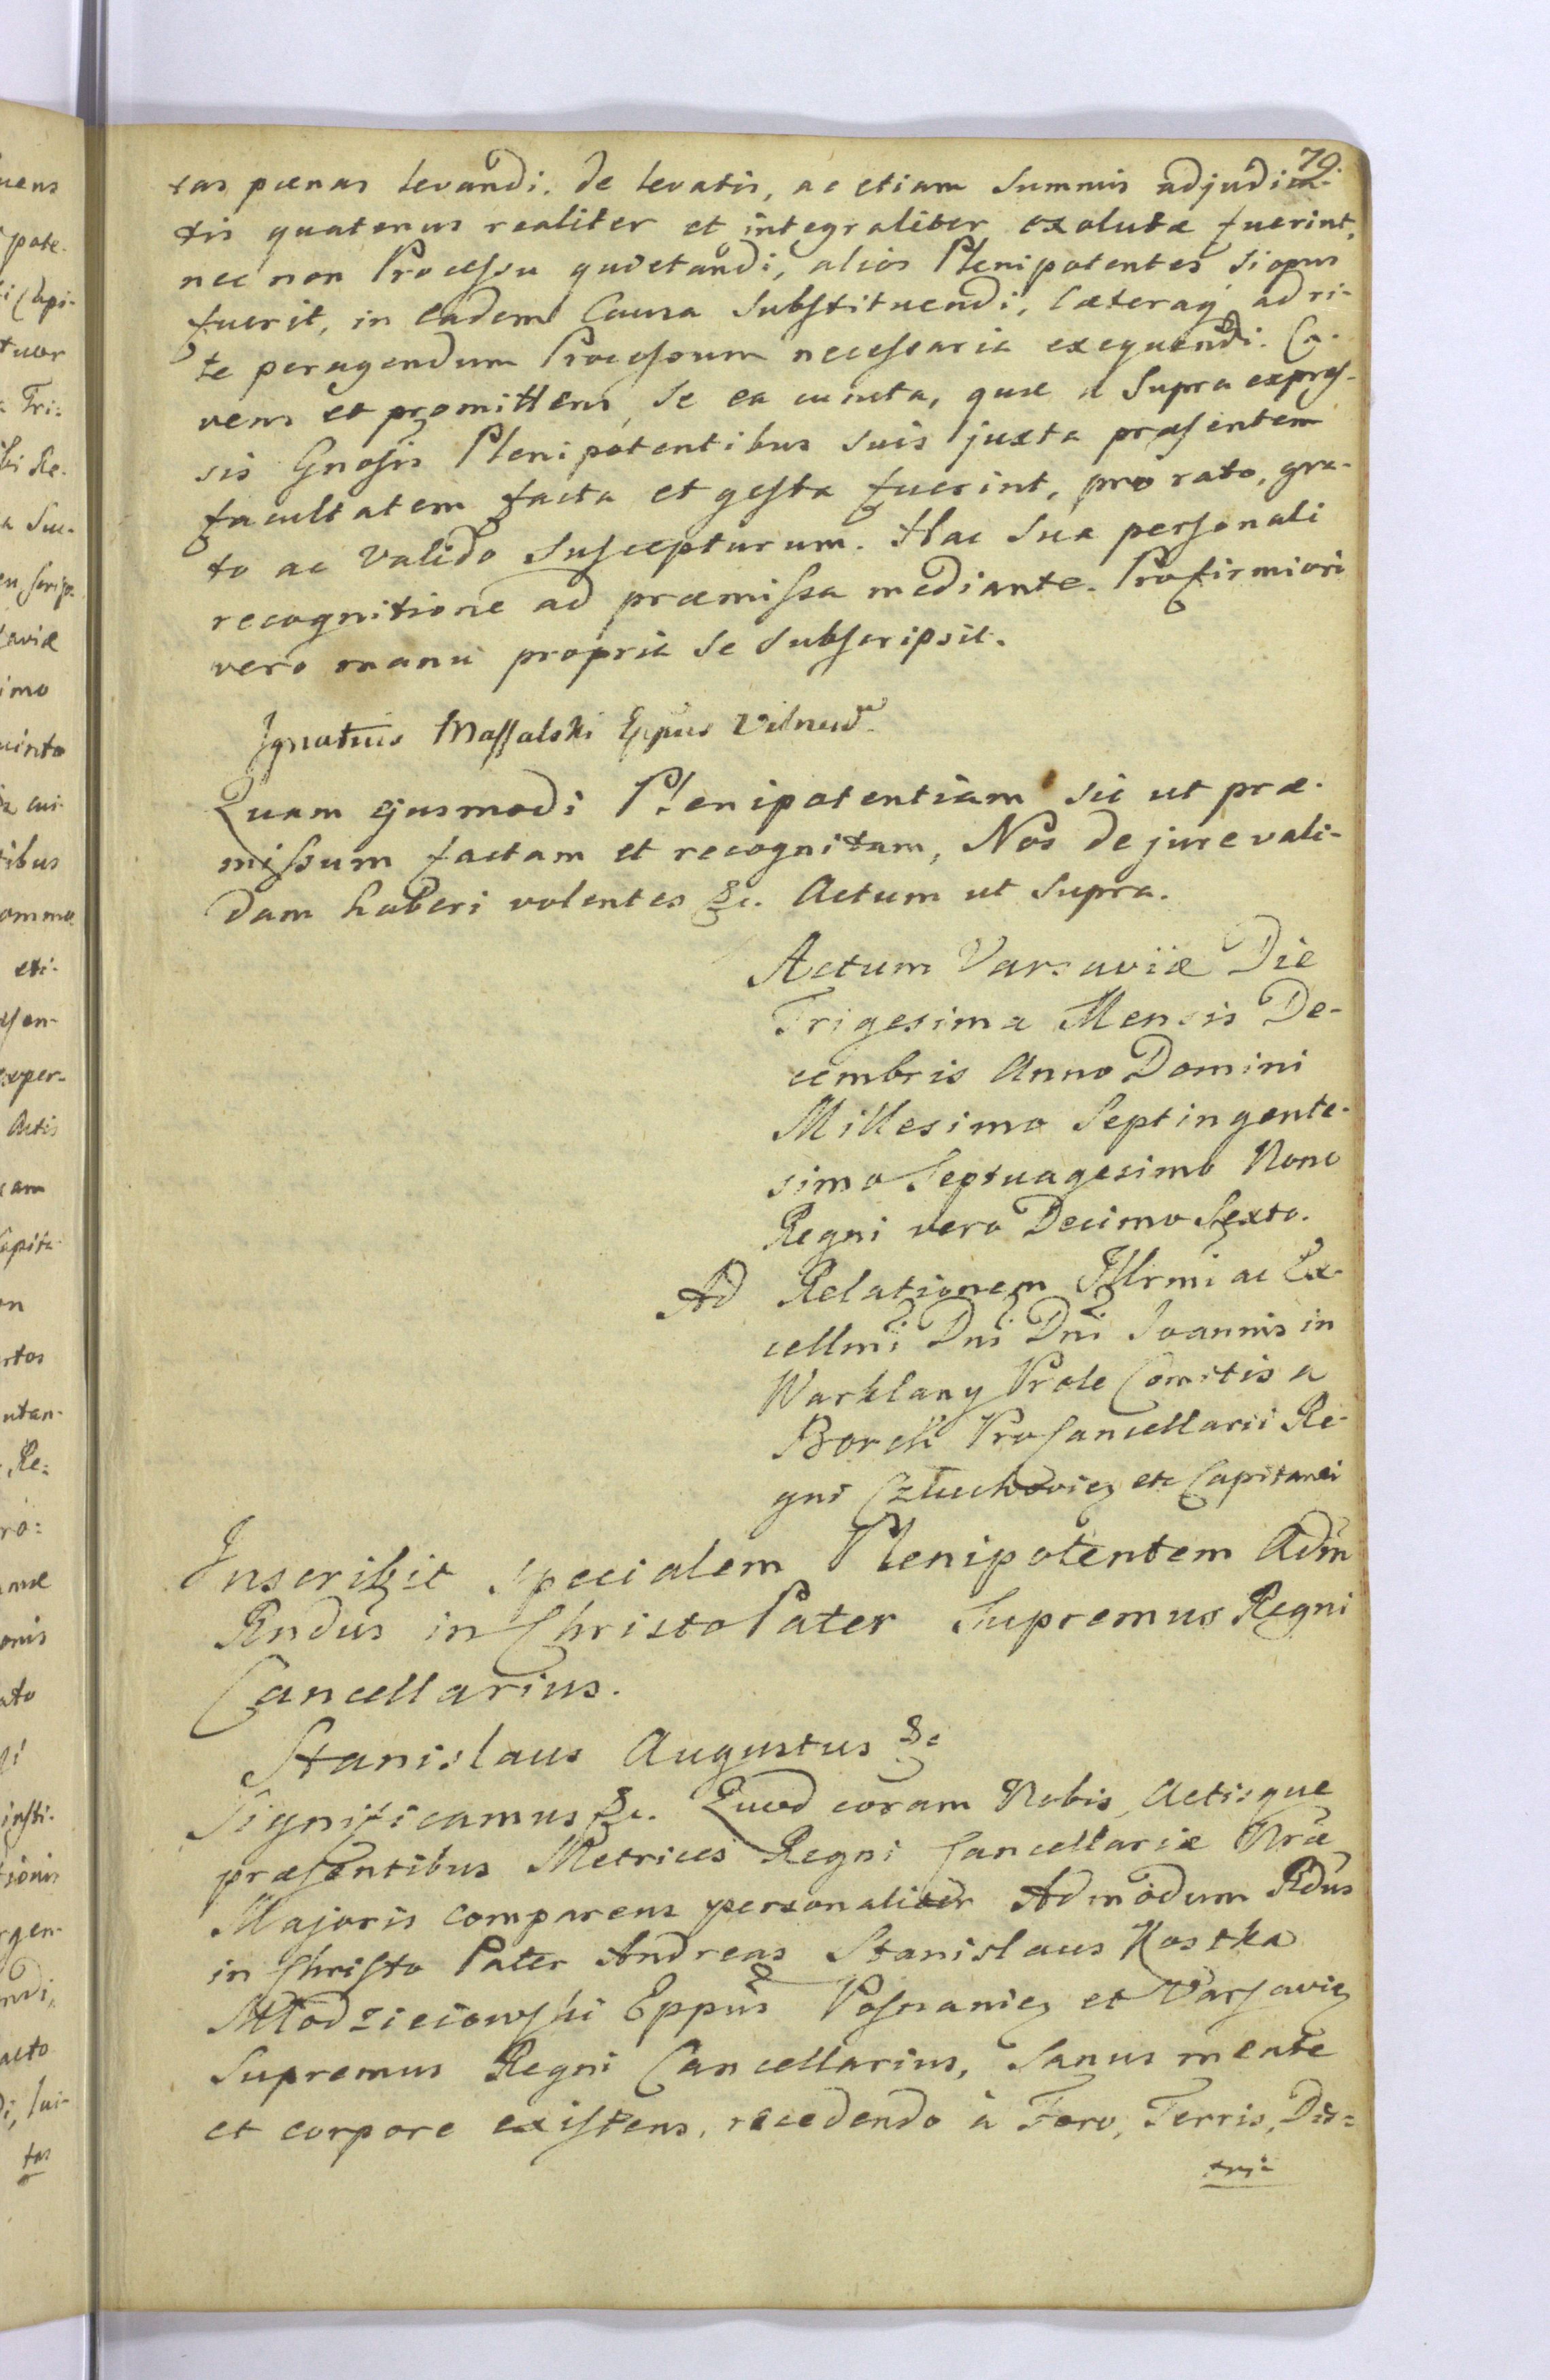 79.
tas pænas levandi. de levatis, ac etiam Summis adjudica-
tis quatenus realiter et integraliter exolutæ fuerint,
nec non Processu quietandi, alios Plenipotentes si opus
fuerit, in eadem Causa Substituendi, Cæteraq ad ri-
te peragendum Processum necessaria exequendi. Ca-
vens et promittens, se ea cuncta, quæ a Supra expres-
sis Gnosis Plenipotentibus suis juxta præsentem
facultatem facta et gesta fuerint, pro rato, gra-
to ac valido Suscepturum. Hac Sua personali
recognitione ad præmissa mediante. Pro firmiori
vero manu propria se Subscripsit.
Ignatius Massalski Eppus Vilnen
Quam ejusmodi Plenipotentiam sic ut præ-
missum factam et recognitam, Nos de jure vali-
dam haberi volentes &c. Actum ut Supra.
Actum Varsaviæ Die
Trigesima Mensis De-
cembris Anno Domini
Millesimo Septingente-
simo Septuagesimo Nono
Regni vero Decimo Sexto.
Ad Relationem Illrmi ac Ex-
cellmi Dni Dni Joannis in
Warklany Prole Comitis a
Borch ProCancellarii Re-
gni Człuchovien etc Capitanei
Inscribit specialem Plenipotentem Adm
Rndus in Christo Pater Supremus Regni
Cancellarius.
Stanislaus Augustus &c
Significamus &c. Quod coram Nobis, Actisque
præsentibus Metrices Regni Cancellariæ Nræ
Majoris comparens personaliter Admodum Rdus
in Christo Pater Andreas Stanislaus Kostka
Młodzieiowski Eppus Posnanien et Varsavien
Supremus Regni Cancellarius, Sanus mente
et corpore existens, recedendo à Foro, Terris, Dis=
tri=